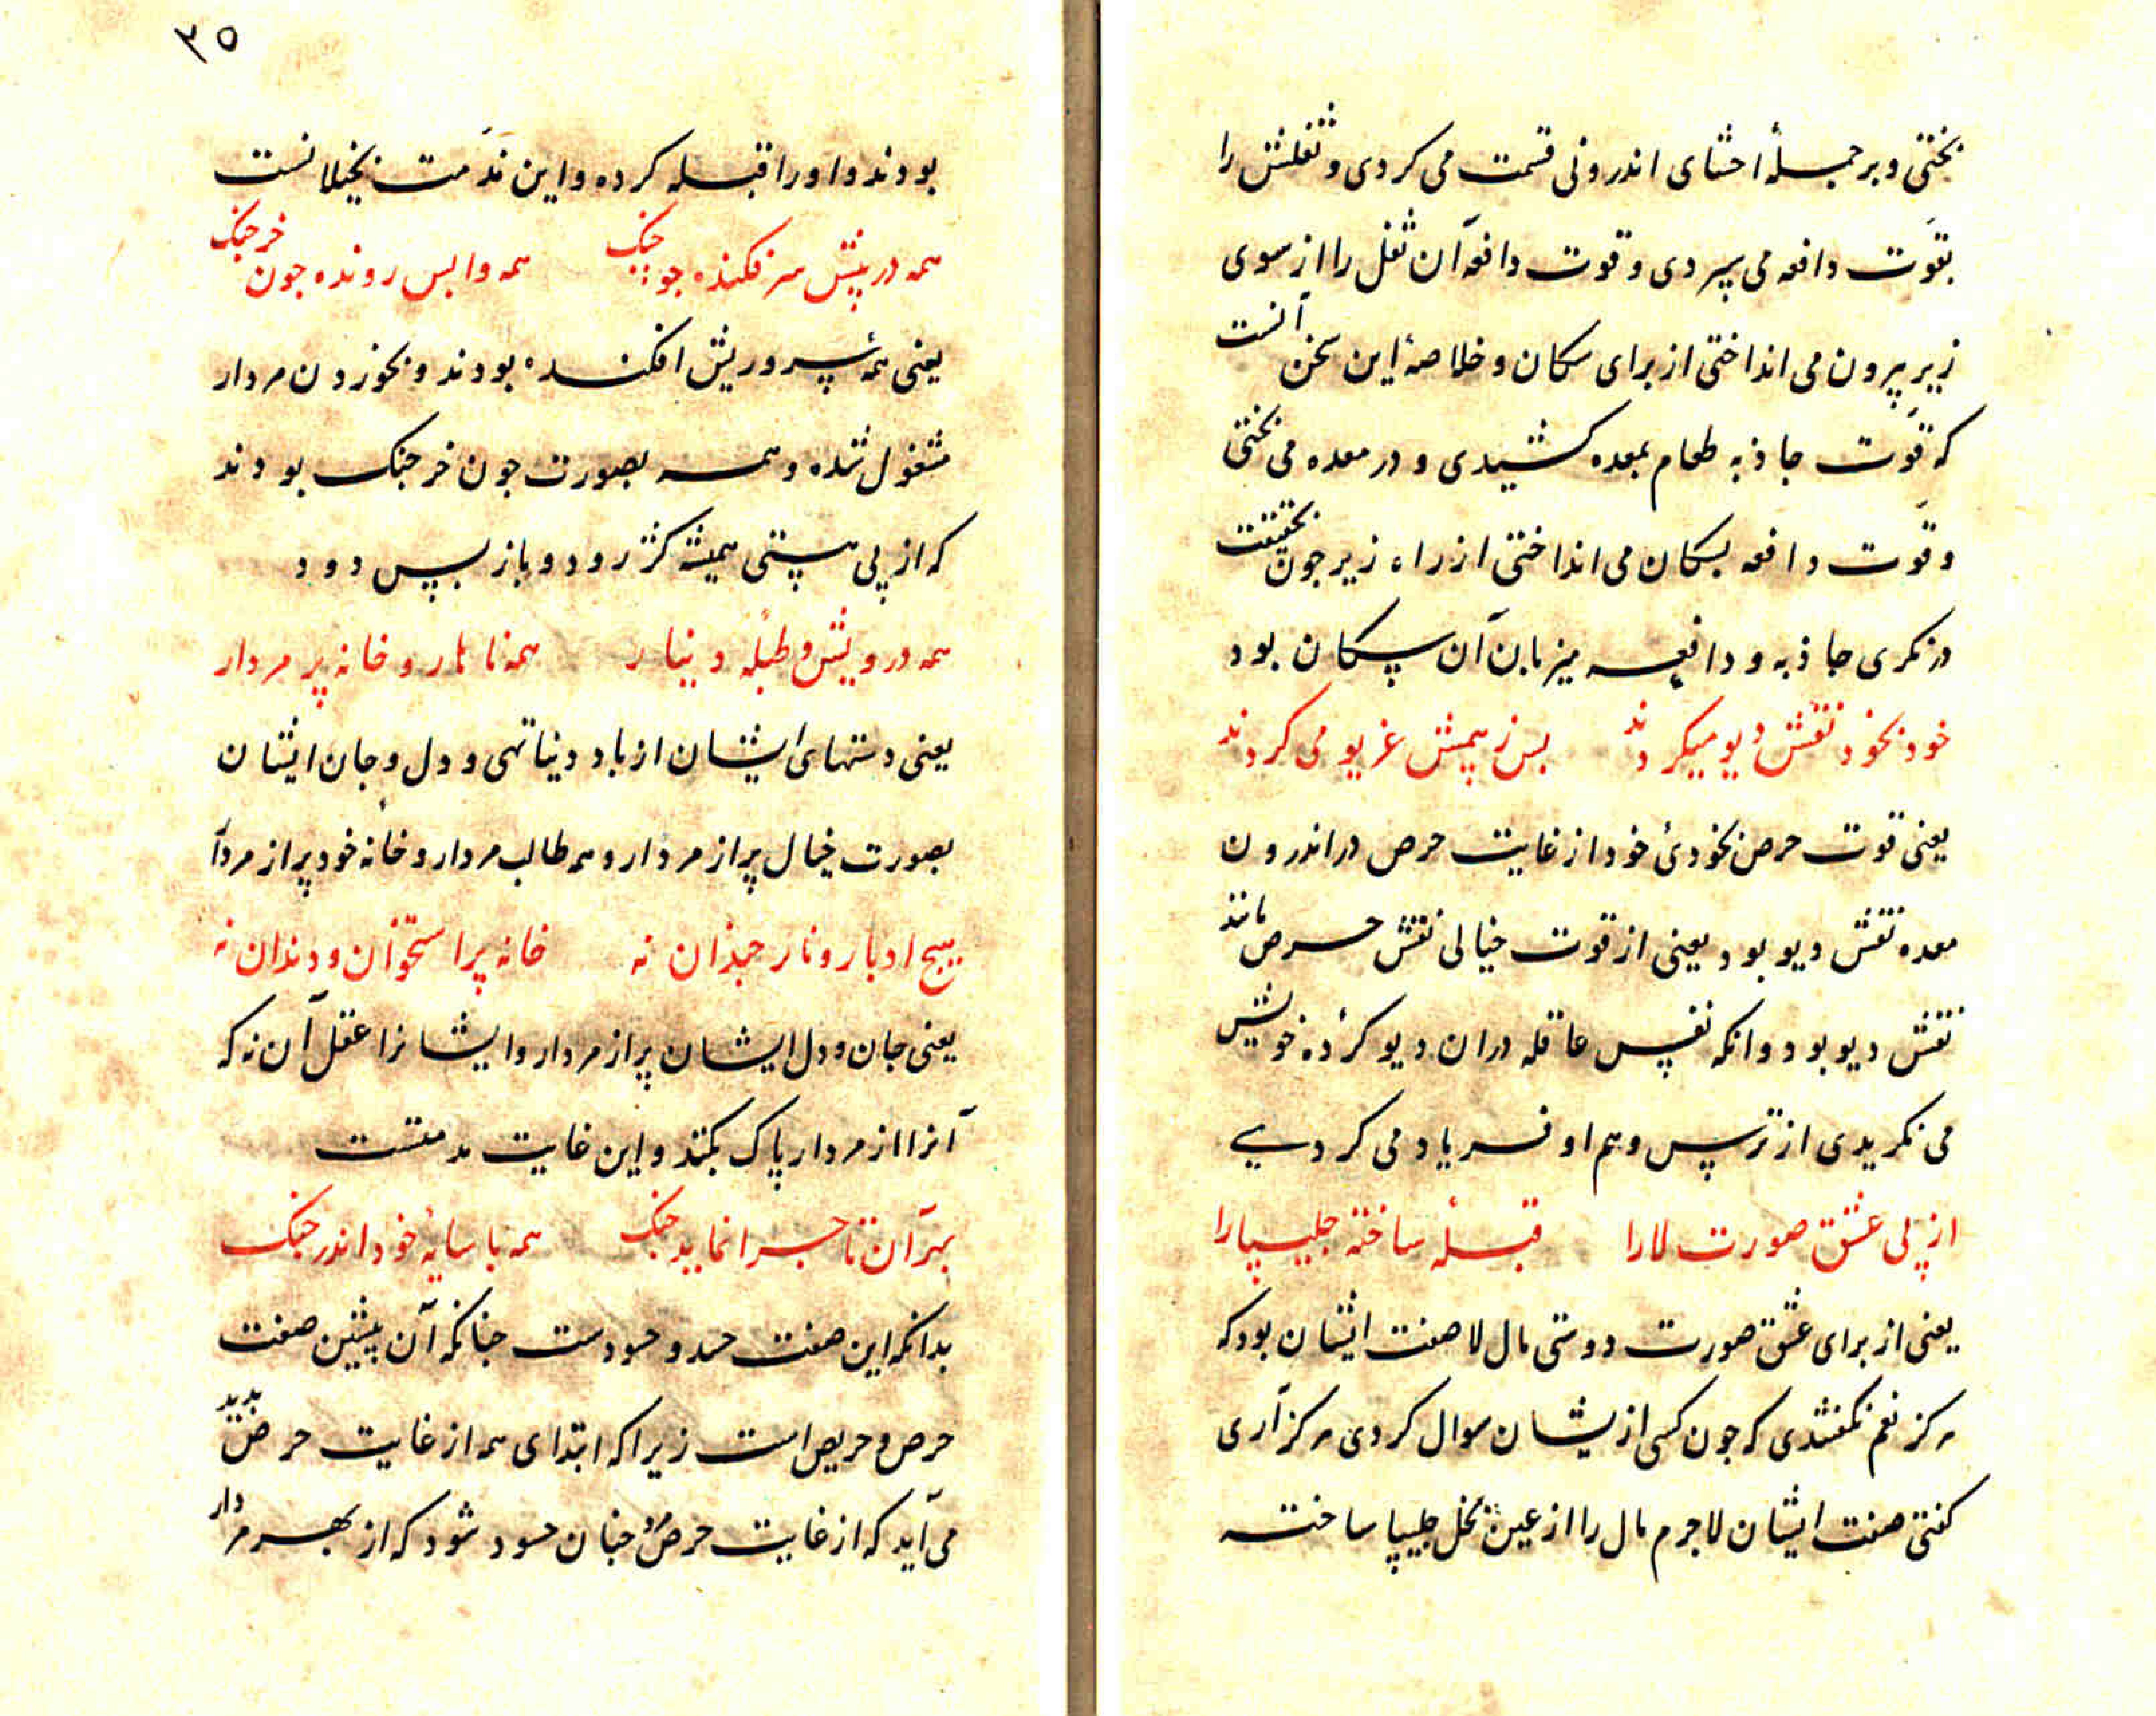 بختی و بر جملهٔ احشای اندرونی قسمت می کردی و ثفلش را
بقوّت دافعه می سپردی و قوت دافعه آن ثفل را از سوی
زیر بیرون می انداختی از برای سکان و خلاصهٔ این سخن آنست
که قوّت جاذبه طعام بمعده کشیدی و در معده می بختی
و قوّت دافعه بسکان می انداختی از راه زیر جون بحقیقت
در نکری جاذبه و دافعه میزبان آن سکان بود
خود بخود نقش دیو میکردند بس ز بیمش غریو می کردند
یعنی قوت حرص بخودیٔ خود از غایت حرص در اندرون
معده نقش دیو بود یعنی از قوت خیالی نقش حرص مانند
نقش دیو بود وانکه نفس عاقله دران دیو کردهٔ خویش
می نکریدی از ترس و هم او فریاد می کردی
از پی عشق صورت لارا قبلهٔ ساخته جلیپارا
یعنی از برای عشق صورت دوستی مال لا صفت ایشان بود که
هرکز نعم نکفتندی که جون کسی ازیشان سوال کردی هرکز آری
کفتی صفت ایشان لاجرم مال را از عین بخل جلیپا ساخته
۳۵
بودند و اورا قبله کرده و این مذمت بخیلانست
همه در پیش سر فکنده جو جنک همه وابس رونده جون خرجنک
یعنی همه سر در پیش افکنده بودند و بخوردن مردار
مشغول شده و همه بصورت جون خرجنک بودند
که از پی پستی همیشه کژ رود و باز پس دود
همه درویش و طبلهٔ دینار همه ناهار و خانه پر مردار
یعنی دستهای ایشان از باد دنیا تهی و دل و جان ایشان
بصورت خیال پر از مردار و همه طالب مردار و خانه خود پر از مردار
هیج ادبار و نار جندان نه خانه پر استخوان و دندان نه
یعنی جان و دل ایشان پر از مردار و ایشانرا عقل آن نه که
آنرا از مردار پاک بکنند و این غایت مذمتست
بهر آن تا جرا نماید جنک همه با سایهٔ خود اندر جنک
بدانکه این صفت حسد و حسودست جنانکه آن پیشین صفت
حرص و حریص است زیرا که ابتدای همه از غایت حرص پدید
می آید که از غایت حرص جنان حسود شود که از بهر مردار